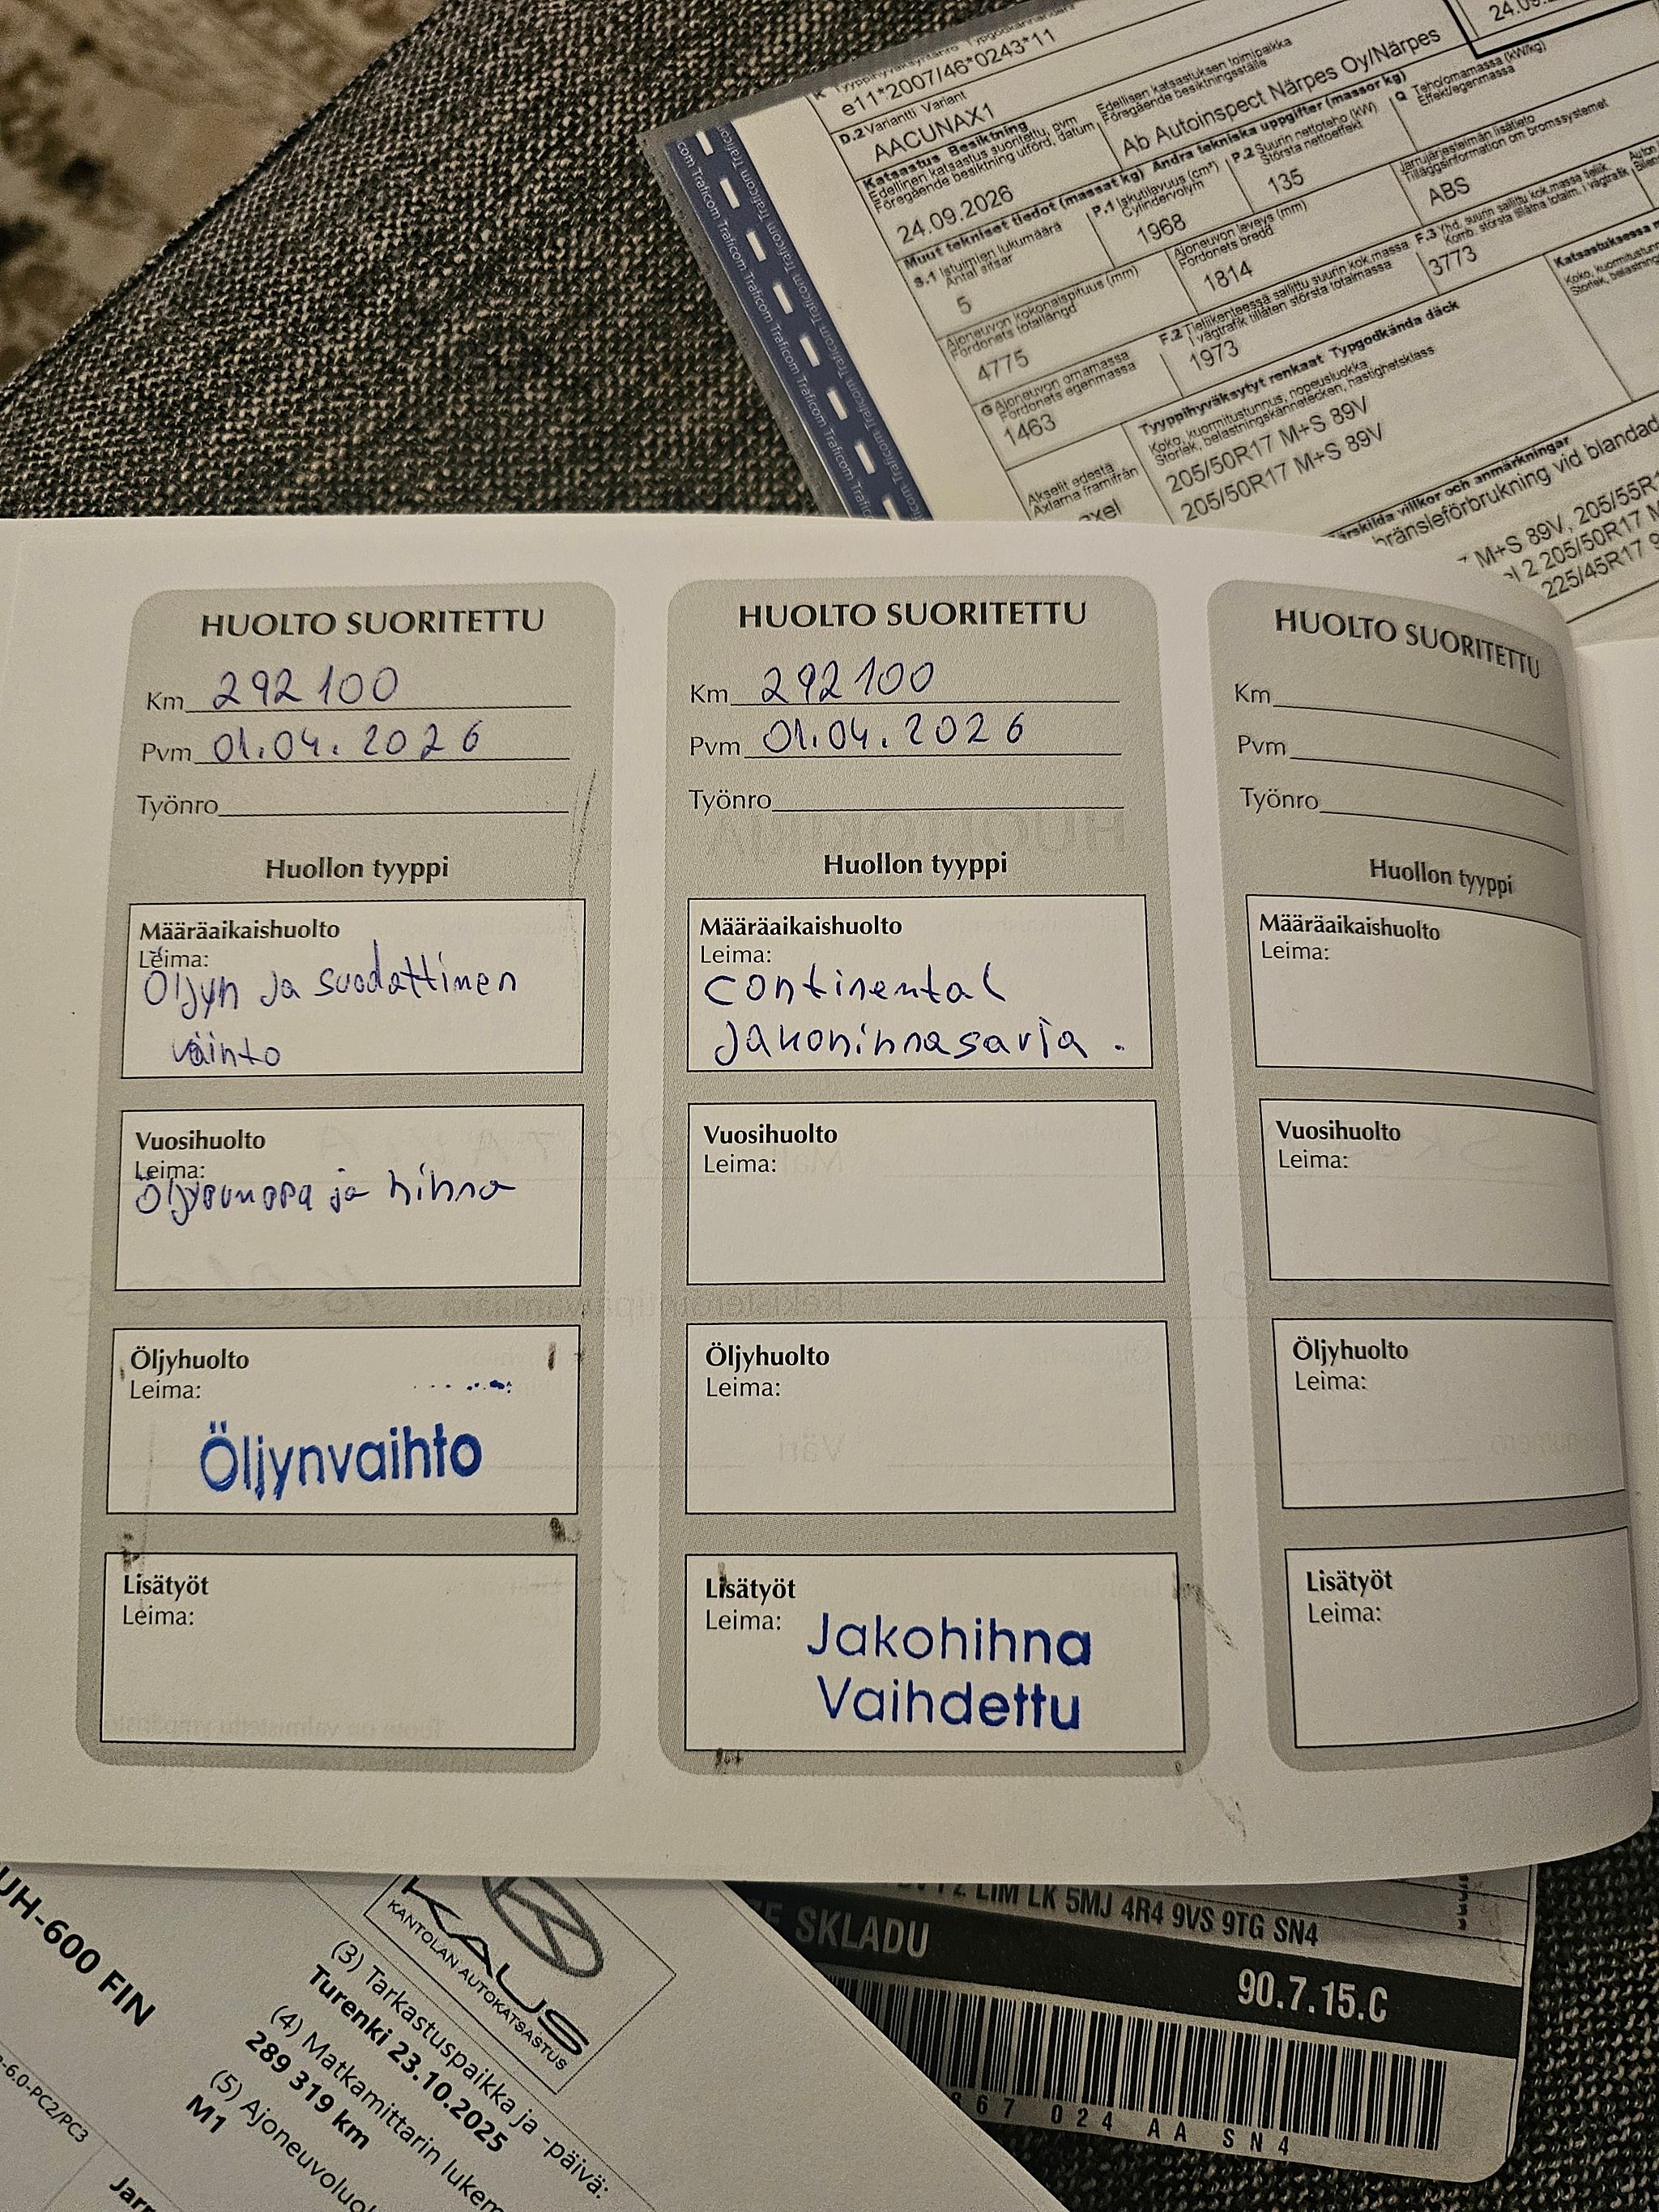 e11*2007/46*0243*11
D.2 Variantti Variant
AACUNAX1
Katsastus Besiktning
Edellinen katsastus suoritettu, pvm
Föregående besiktning utförd, datum
24.09.2026
Edellisen katsastuksen toimipaikka
Föregående besiktningsställe
Ab Autoinspect Närpes Oy/Närpes
Muut tekniset tiedot (massat kg) Andra tekniska uppgifter (massor kg)
S.1 Istuimien lukumäärä
Antal sitsar
5
P.1 Iskutilavuus (cm³)
Cylindervolym
1968
P.2 Suurin nettoteho (kW)
Största nettoeffekt
135
Q Teho/omamassa (kW/kg)
Effekt/egenmassa
Ajoneuvon kokonaispituus (mm)
Fordonets totallängd
4775
Ajoneuvon leveys (mm)
Fordonets bredd
1814
Jarrujärjestelmän lisätieto
Tilläggsinformation om bromssystemet
ABS
G Ajoneuvon omamassa
Fordonets egenmassa
1463
F.2 Tieliikenteessä sallittu suurin kok.massa
I vägtrafik tillåten största totalmassa
1973
F.3 Yhd. suurin sallittu kok.massa tieliik
Komb. största tillåtna totalm. i vägtrafik
3773
Akselit edestä
Axlarna framifrån
Tyyppihyväksytyt renkaat Typgodkända däck
Koko, kuormitustunnus, nopeusluokka
Storlek, belastningskännetecken, hastighetsklass
205/50R17 M+S 89V
205/50R17 M+S 89V
bränsleförbrukning vid blandad
M+S 89V, 205/55R1
2 205/50R17 M
225/45R17 9
Traficom Traficom Traficom Traficom Traficom
HUOLTO SUORITETTU
Km 292 100
Pvm 01.04.2026
Työnro
Huollon tyyppi
Määräaikaishuolto
Leima:
Öljyn ja suodattimen
vainto
Vuosihuolto
Leima:
Öljypumppa ja hihna
Öljyhuolto
Leima:
Öljynvaihto
Lisätyöt
Leima:
HUOLTO SUORITETTU
Km 292 100
Pvm 01.04.2026
Työnro
Huollon tyyppi
Määräaikaishuolto
Leima:
Continental
Jakohihnasarja.
Vuosihuolto
Leima:
Öljyhuolto
Leima:
Lisätyöt
Leima:
Jakohihna
Vaihdettu
HUOLTO SUORITETTU
Km
Pvm
Työnro
Huollon tyyppi
Määräaikaishuolto
Leima:
Vuosihuolto
Leima:
Öljyhuolto
Leima:
Lisätyöt
Leima:
UH-600 FIN
-6.0-PC2/PC3
KALUS
KANTOLAN AUTOKATSASTUS
(3) Tarkastuspaikka ja -päivä:
Turenki 23.10.2025
(4) Matkamittarin lukem
289 319 km
(5) Ajoneuvoluok
M1
Jarr
LIM LK 5MJ 4R4 9VS 9TG SN4
SKLADU
90.7.15.C
867 024 AA SN4